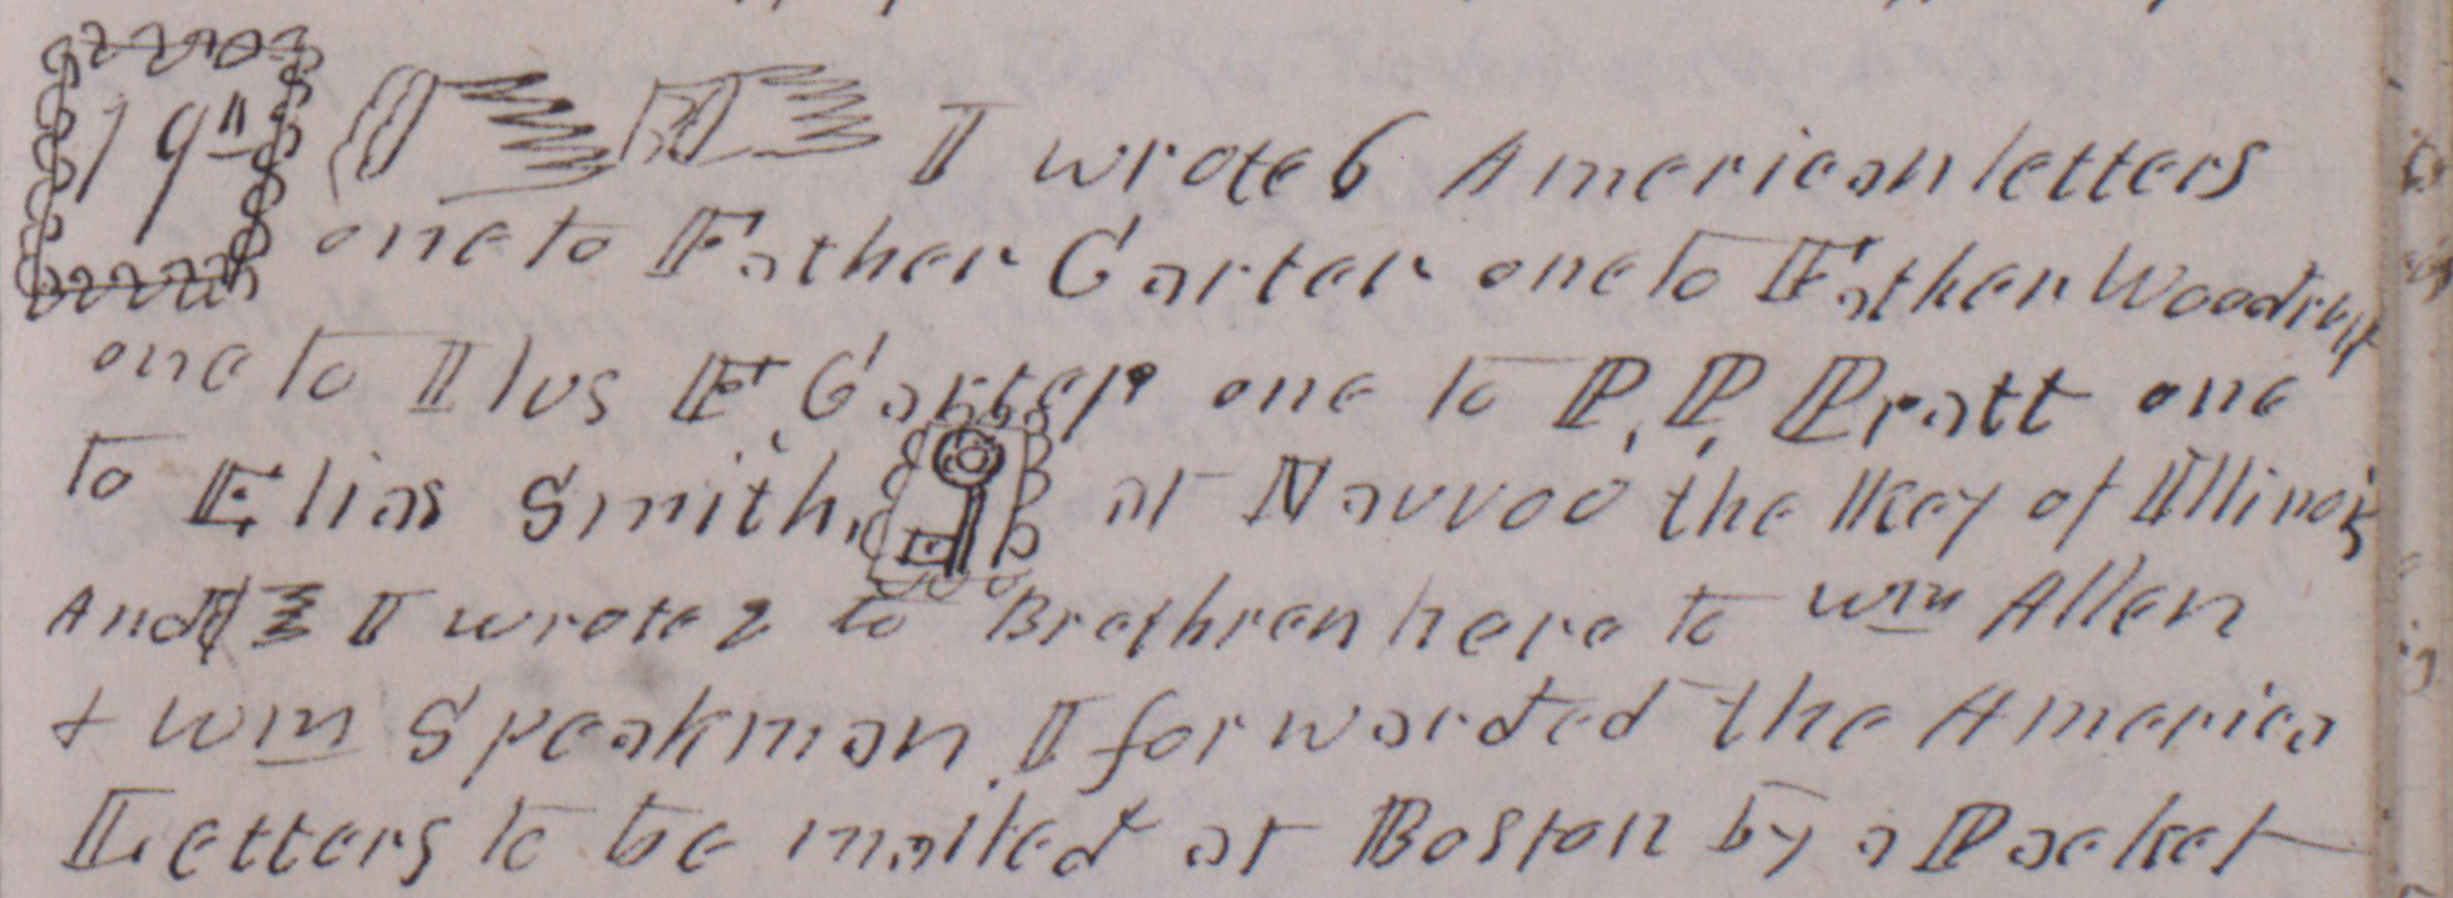 19th I wrote 6 American letters
one to Father Carter one to Father Woodruff
one to Ilus F. Carter one to P. P. Pratt one
to Elias Smith, at Nauvoo the Key of Illinois
And I wrote 2 to Brethren here to Wm Allen
+ Wm Speakman. I forwarded the America
Letters to be mailed at Boston by a Packet